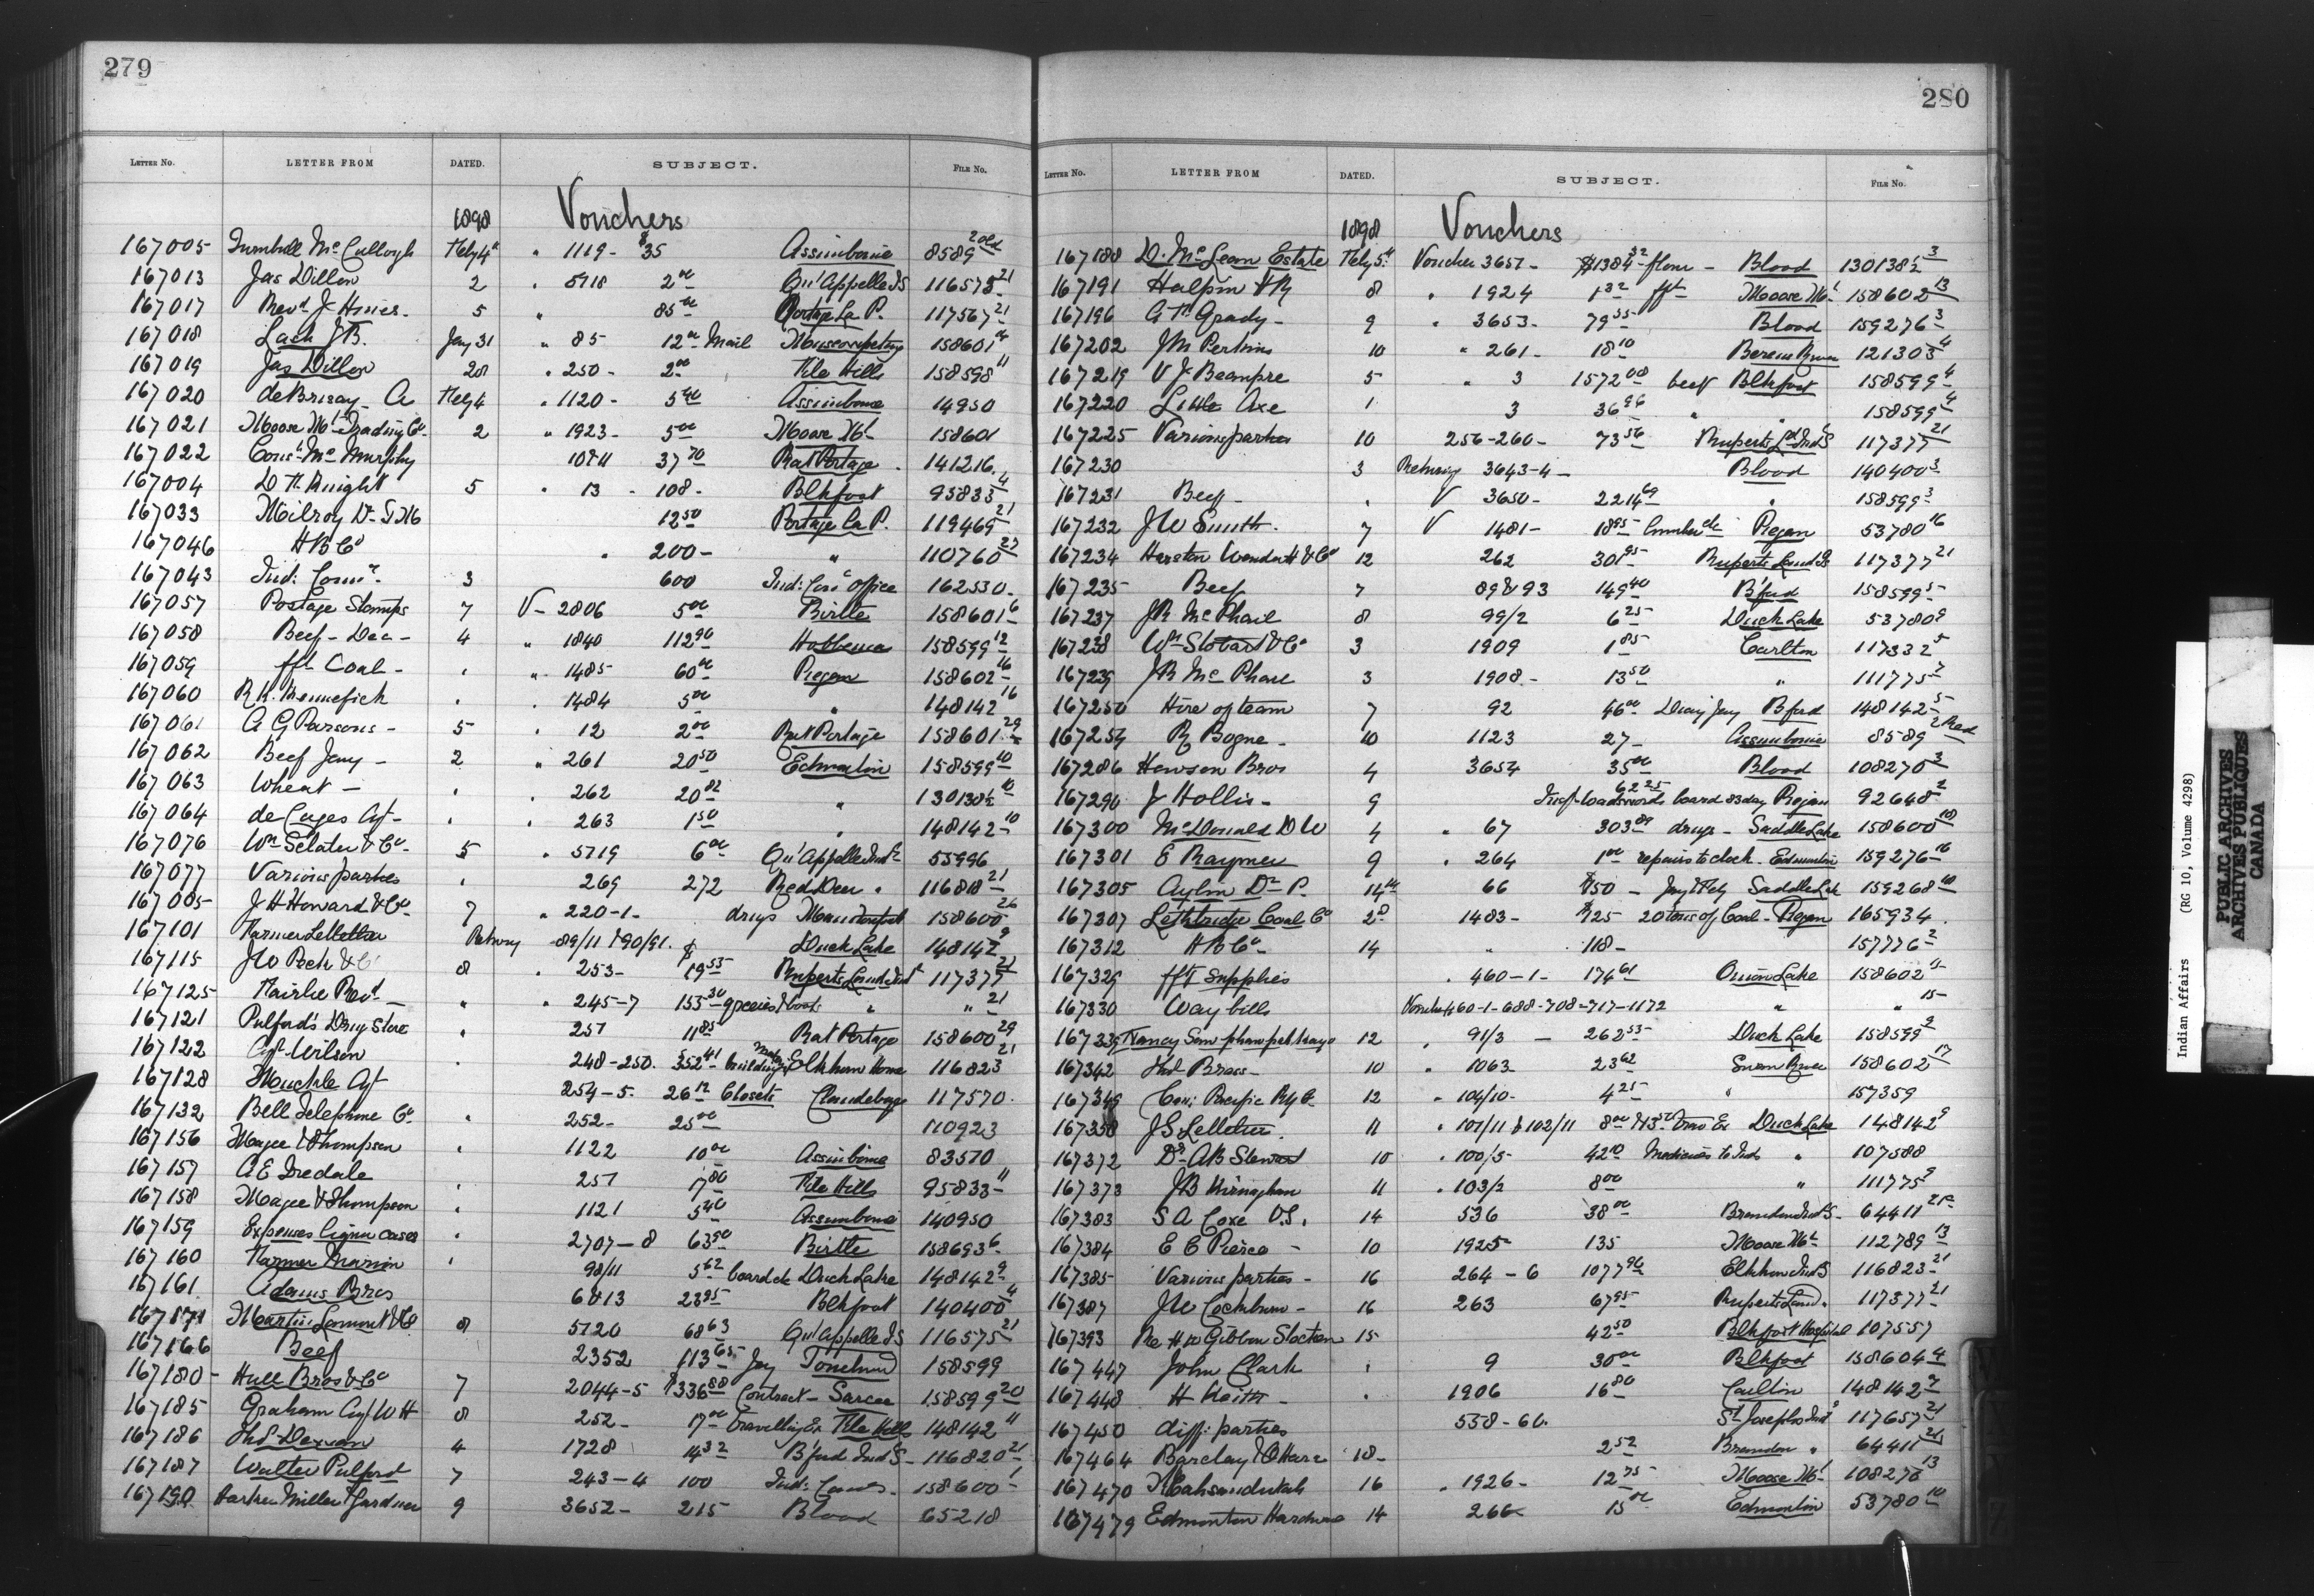 279
LETTER NO. LETTER FROM DATED. SUBJECT. FILE No.
1898 Vouchers
167005 Turnbull McCullogh Feby 4 " 1119 - $35 Assiniboine 8589 2 old
167013 Jas Dillon 2 " 5718 2 00 Qu'Appelle IS 116575 21
167017 Revd J Hines 5 " 85 00 Portage La P. 117567 21
167018 Lash JB. Jany 31 " 85 12 00 Mail Muscowpetung 158601
167019 Jas Dillon 28 " 250 - 2 00 File Hills 158598 11
167020 deBrisay A Feby 4 " 1120 - 5 40 Assiniboine 14950
167021 Moose Mt Trading Co 2 " 1923 - 5 00 Moose Mt 158601
167022 Const Mc Murphy 37 70 Rat Portage 141216
167004 D H Knight 5 " 13 - 108 - Blkfoot 95833 4
167033 Milroy 12 50 Portage La P. 119469 21
167046 H B Co " 200 - " 110760 27
167043 Ind: Comr. 3 600 Ind: Com Office 162530
167057 Postage Stamps 7 V - 2806 5 00 Birtle 158601 6
167058 Beef - Dec - 4 " 1840 112 90 Hobbema 158599 12
167059 fft Coal - " " 1485 60 00 Piegan 158602 16
167060 R. H. Kennefick " " 1484 5 00 " 148142 16
167061 A G Parsons - 5 " 12 2 00 Rat Portage 158601 29
167062 Beef Jany - 2 " 261 20 50 Edmonton 158599 10
167063 Wheat - " " 262 20 82 " 130138½ 10
167064 de Cazes Agt - " " 263 1 50 " 148142 10
167076 Wm Sclater & Co - 5 " 5719 6 00 Qu'Appelle Inds 55996
167077 Various parties " 269 272 Red Deer " 116818 21
167085 J H Howard & Co 7 " 220-1 - drugs 158600 26
167101 Farmer Lelletier Retursg 89/11 & 90/91. Duck Lake 148142 9
167115 J W Peck & Co 8 " 253 - $19 55 Ruperts Land Inst 117377 21
167125 Fairlie Revd - " " 245-7 153 30 groceries & boots " " 21
167121 Pulford's Drug Store " 251 11 85 Rat Portage 158600 29
167122 Agt Wilson " 248-250. 352 41 building Elkhorn Home 116823 21
167128 Agt 254-5. 26 12 Closets Clandeboye 117570
167132 Bell Telephone Co. " 252 - 25 00 110923
167156 Magee & Thompson " 1122 10 00 Assiniboine 83570
167157 A E Iredale 257 17 80 File Hills 95833 11
167158 Magee & Thompson " 1121 5 40 Assiniboine 140950
167159 Expenses liquor cases " 2707-8 63 50 Birtle 158693 6
167160 Farmer Marion " 98/11 5 62 board &c Duck Lake 148142 9
167161 Adams Bros 6 & 13 23 95 Blkfoot 140400 4
167171 Martin Lamont & Co 8 5720 68 63 Qu'Appelle IS 116575 21
167166 Beef 2352 113 65 Jany Touchwd 158599
167180 - Hull Bros & Co 7 2044-5 $336 88 Contract - Sarcee 158599 20
167185 Graham Agt W H 8 252 - 17 00 travelling Ex File Hills 148142 11
167186 4 1728 14 32 B'ford Ind S - 116820 21
167187 Walter Pulford 7 243-4 100 Ind: 158600 1
167190 Miller Gardner 9 3652 - 215 Blood 65218
280
LETTER No. LETTER FROM DATED. SUBJECT. FILE No.
1898 Vouchers
167188 D. McLean Estate Feby 5 Voucher 3651 - $1384 32 flour - Blood 130138½ 3
167191 Halpin 8 " 1924 1 32 fft Moose Mt 158602 13
167196 Grady - 9 " 3653 - 79 55 Blood 159276 3
167202 J M Perkins 10 " 261 - 18 10 Berens River 121303 4
167219 V J Beaupre 5 " 3 1572 08 beef Blkfoot 158599 4
167220 Little Axe 1 3 36 96 " " 158599 4
167225 Various parties 10 256-260 - 73 56 Ruperts Ld Ind S 117377 21
167230 3 Returng 3643-4 - Blood 140400 3
167231 Beef - " V 3650 - 2214 69 " 158599 3
167232 J W Smith. 7 V 1481 - 18 95 lumber &c Piegan 53780 16
167234 12 262 301 95 Ruperts Land IS 117377 21
167235 Beef 7 89 & 93 149 40 B'ford 158599 5
167237 J R McPhail 8 99/2 6 25 Duck Lake 53780 9
167238 Wm Stobart & Co 3 1909 1 85 Carlton 117332 5
167239 J R McPhail 3 1908 - 13 50 " 111775 7
167250 Hire of team 7 92 46 00 Diary Jany B'ford 148142 5
167254 R Bogne - 10 1123 27 - Assiniboine 8589 2 Red
167286 Henson Bros 4 3654 35 00 Blood 108270 3
167290 J Hollis - 9 62 25 Insp Wadsworth board 83 day Piegan 92648 2
167300 McDonald D W 4 " 67 303 89 drugs - Saddle Lake 158600 18
167301 E Raymer 9 " 264 1 00 repairs to clock - Edmonton 159276 16
167305 Aylin Dr P. 14th 66 $50 - Jany & Feby Saddle Lake 159268
167307 Lethbridge Coal Co 2d 1483 - $125 20 tons of Coal - Piegan 165934
167312 H B Co - 14 " 118 - 157776 2
167329 fft Supplies " 460-1 - 174 61 Onion Lake 158602 15
167330 Way bills Vouchers 460-1-688-708-717-1172 " " 15
167335 12 " 91/3 - 262 53 Duck Lake 158599 9
167342 Thos Brass - 10 " 1063 23 62 Swan River 158602 17
167349 Can: Pacific Ry Co - 12 " 104/10 - 4 25 " 157359
167358 J S Lelletier. 11 " 101/11 & 102/11 8 00 & 13 50 trav Ex Duck Lake 148142 9
167372 Dr A B Stewart 10 " 100/5 - 42 10 Medicines to Inds " 107588
167373 J B Kirnaghan 11 " 103/2 8 00 " 111775 9
167383 S A Coxe V.S. 14 536 38 00 Brandon Ind S - 64411 21
167384 E C Pierce - 10 1925 135 Moose Mt 112789 13
167385 Various parties - 16 264-6 1077 96 Elkhorn Ind S 116823 21
167387 J W Cockburn - 16 263 67 95 Ruperts Land " 117377 21
167393 Re H W Gibbon Stocken 15 42 50 Blkfoot Hospital 107557
167447 John Clark " 9 30 00 Blkfoot 158604 4
167448 H Keith - " 1906 16 80 Carlton 148142 7
167450 diff: parties 558-60. St Josephs Inds 117657 21
167464 Barclay & O'Hara 18 - 2 52 Brandon " 64411 21
167470 Kahsundutah 16 " 1926 - 12 75 Moose Mt 108278 13
167479 Edmonton Hardware 14 266 15 00 Edmonton 53780 10
Indian Affairs (RG 10, Volume 4298)
PUBLIC ARCHIVES
ARCHIVES PUBLIQUES
CANADA